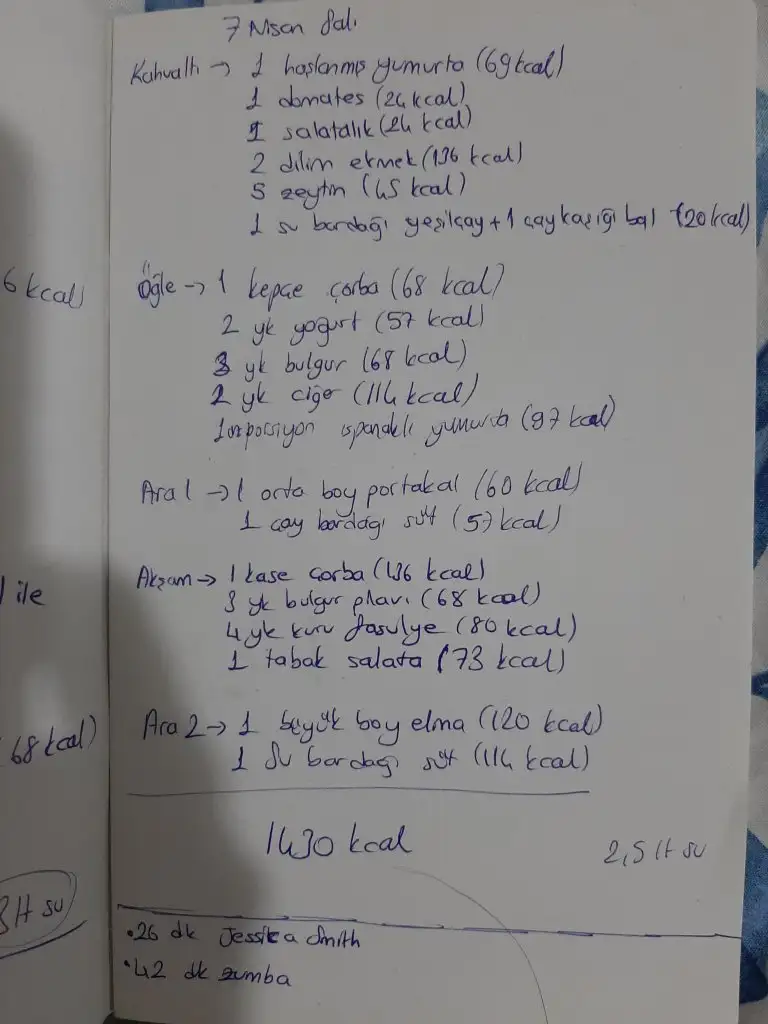 7 Nisan Salı
Kahvaltı → 1 haşlanmış yumurta (69 kcal)
1 domates (24 kcal)
1 salatalık (24 kcal)
2 dilim ekmek (136 kcal)
5 zeytin (45 kcal)
1 su bardağı yeşilçay + 1 çay kaşığı bal (20 kcal)
6 kcal)
Öğle → 1 kepçe çorba (68 kcal)
2 yk yoğurt (57 kcal)
3 yk bulgur (68 kcal)
2 yk ciğer (114 kcal)
porsiyon ıspanaklı yumurta (97 kcal)
Ara 1 → 1 orta boy portakal (60 kcal)
1 çay bardağı süt (57 kcal)
Akşam → 1 kase çorba (136 kcal)
ile
3 yk bulgur pilavı (68 kcal)
4 yk kuru fasulye (80 kcal)
1 tabak salata (73 kcal)
Ara 2 → 1 büyük boy elma (120 kcal)
68 kcal)
1 su bardağı süt (114 kcal)
1430 kcal
2,5 lt su
3 lt su
• 26 dk Jessica Smith
• 42 dk zumba